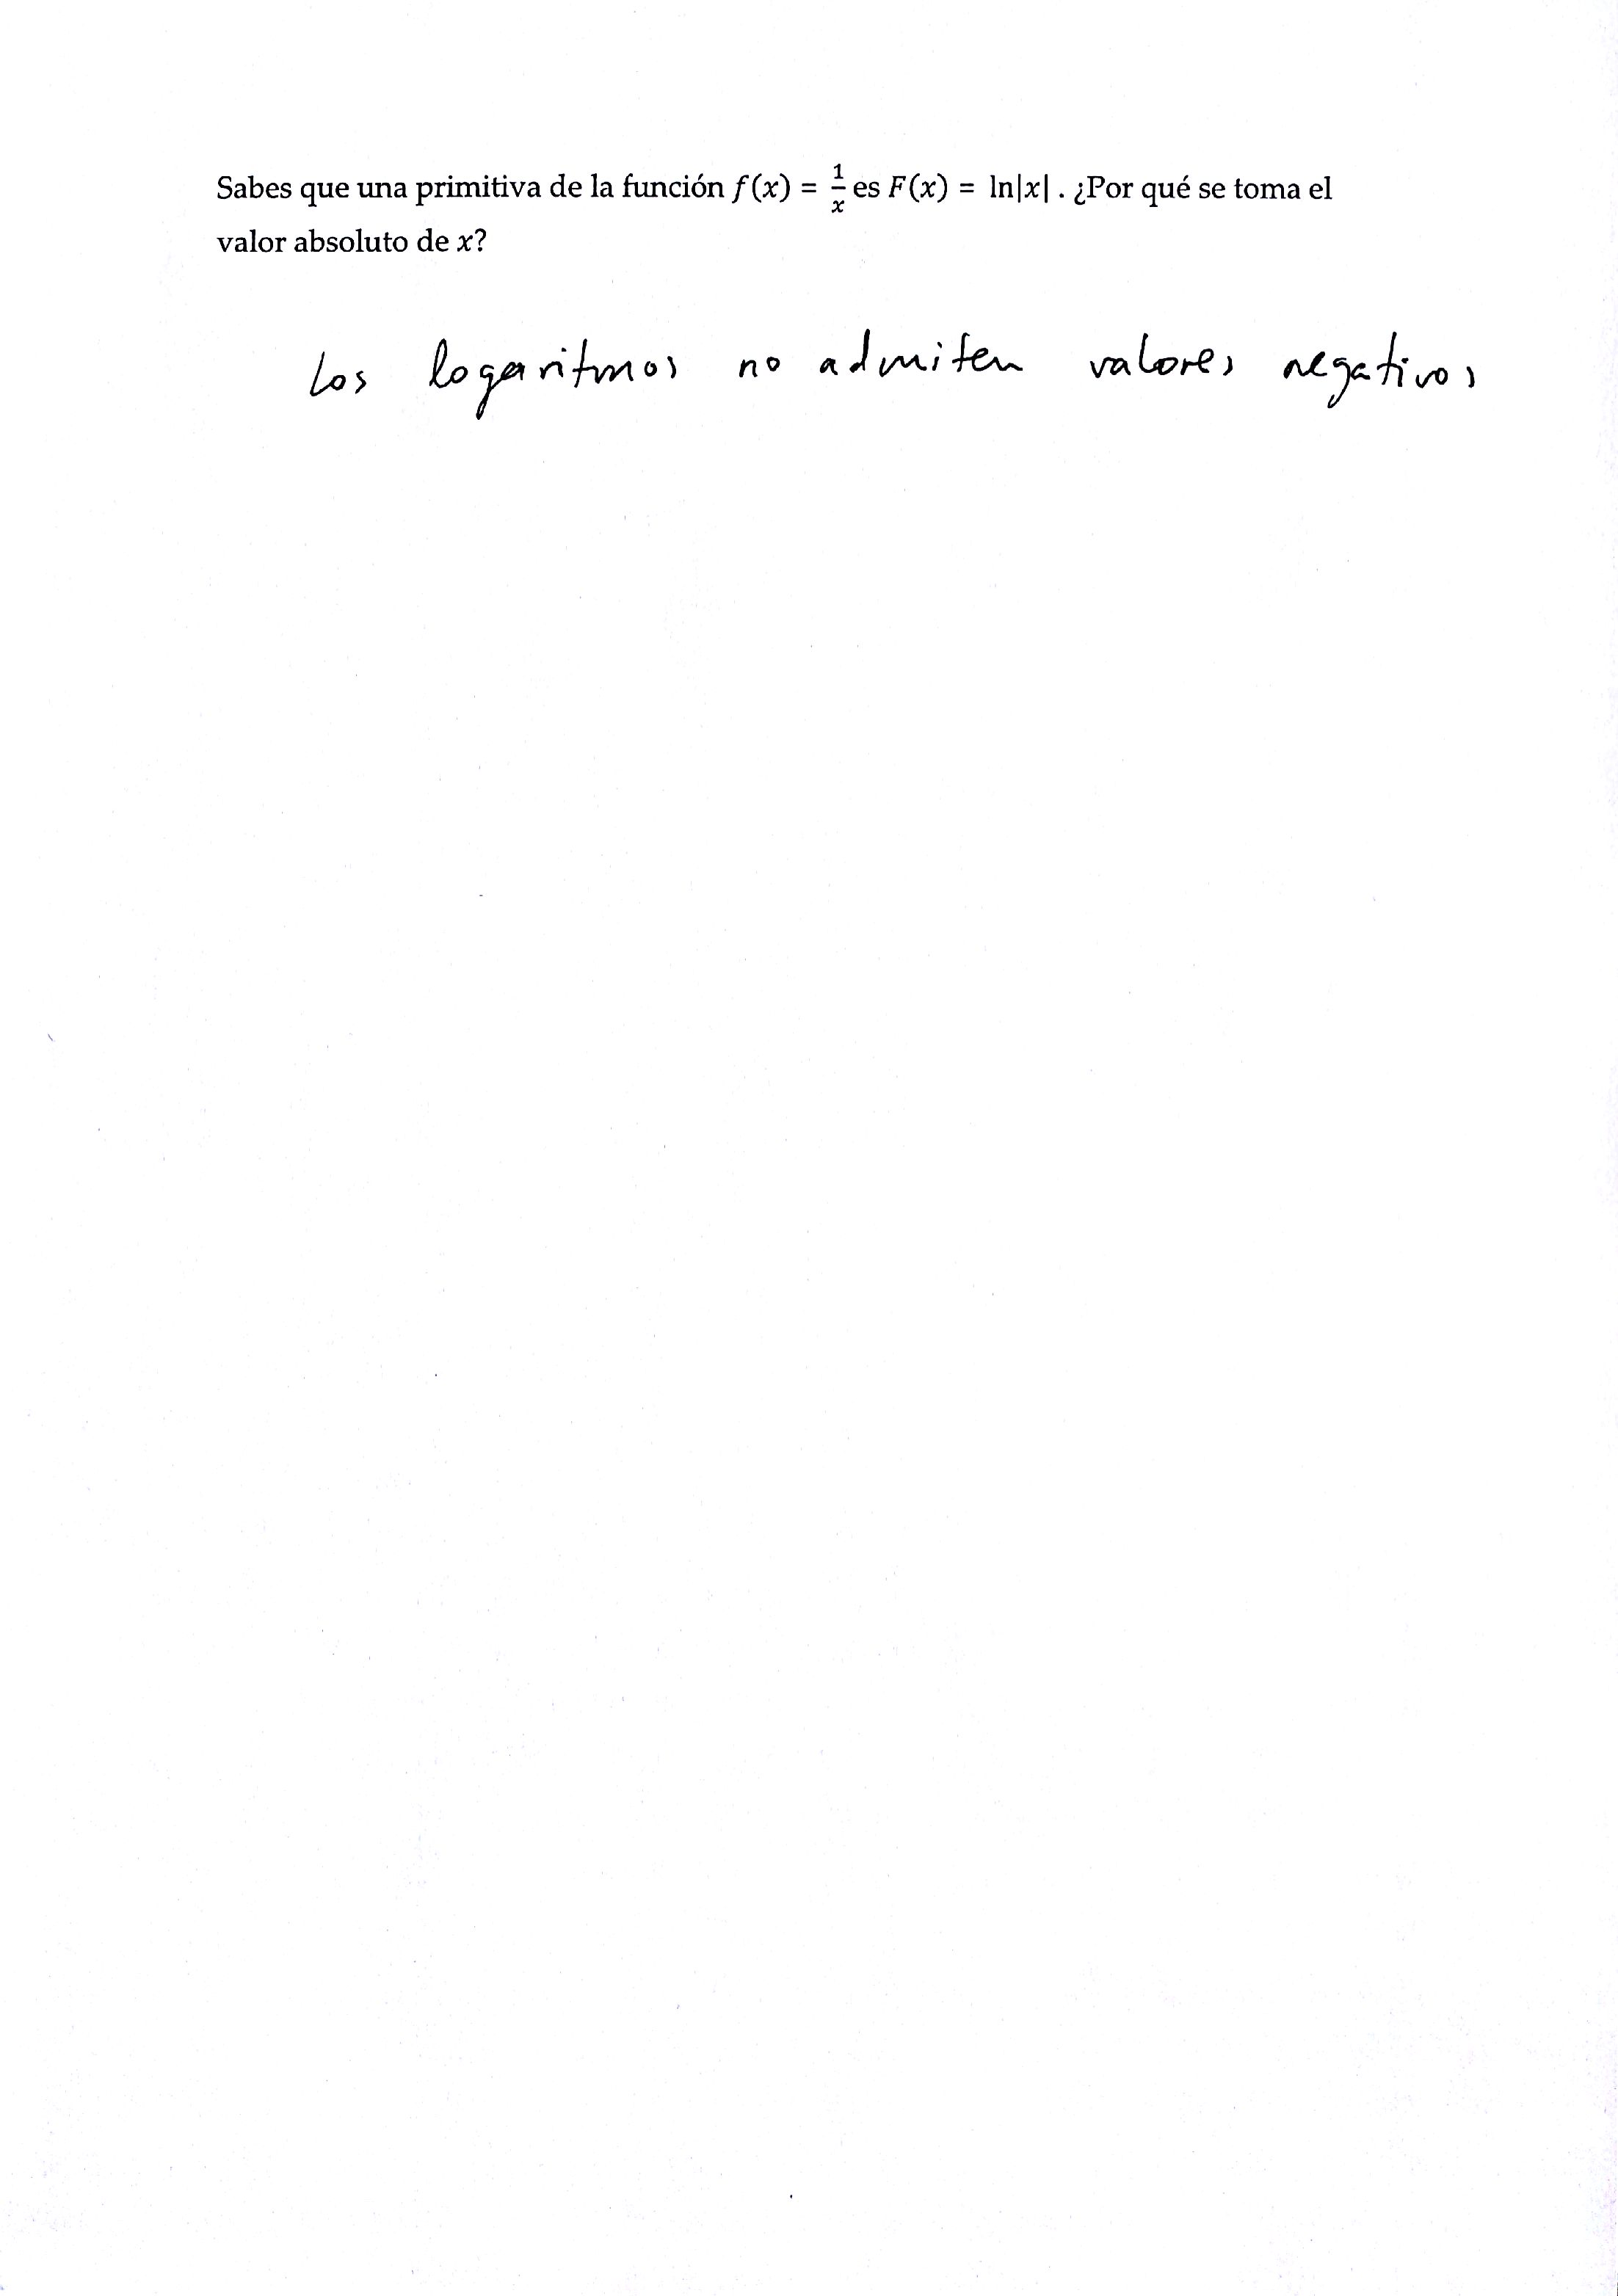 Sabes que una primitiva de la función f(x) = 1/x es F(x) = ln|x| . ¿Por qué se toma el
valor absoluto de x?
Los logaritmos no admiten valores negativos